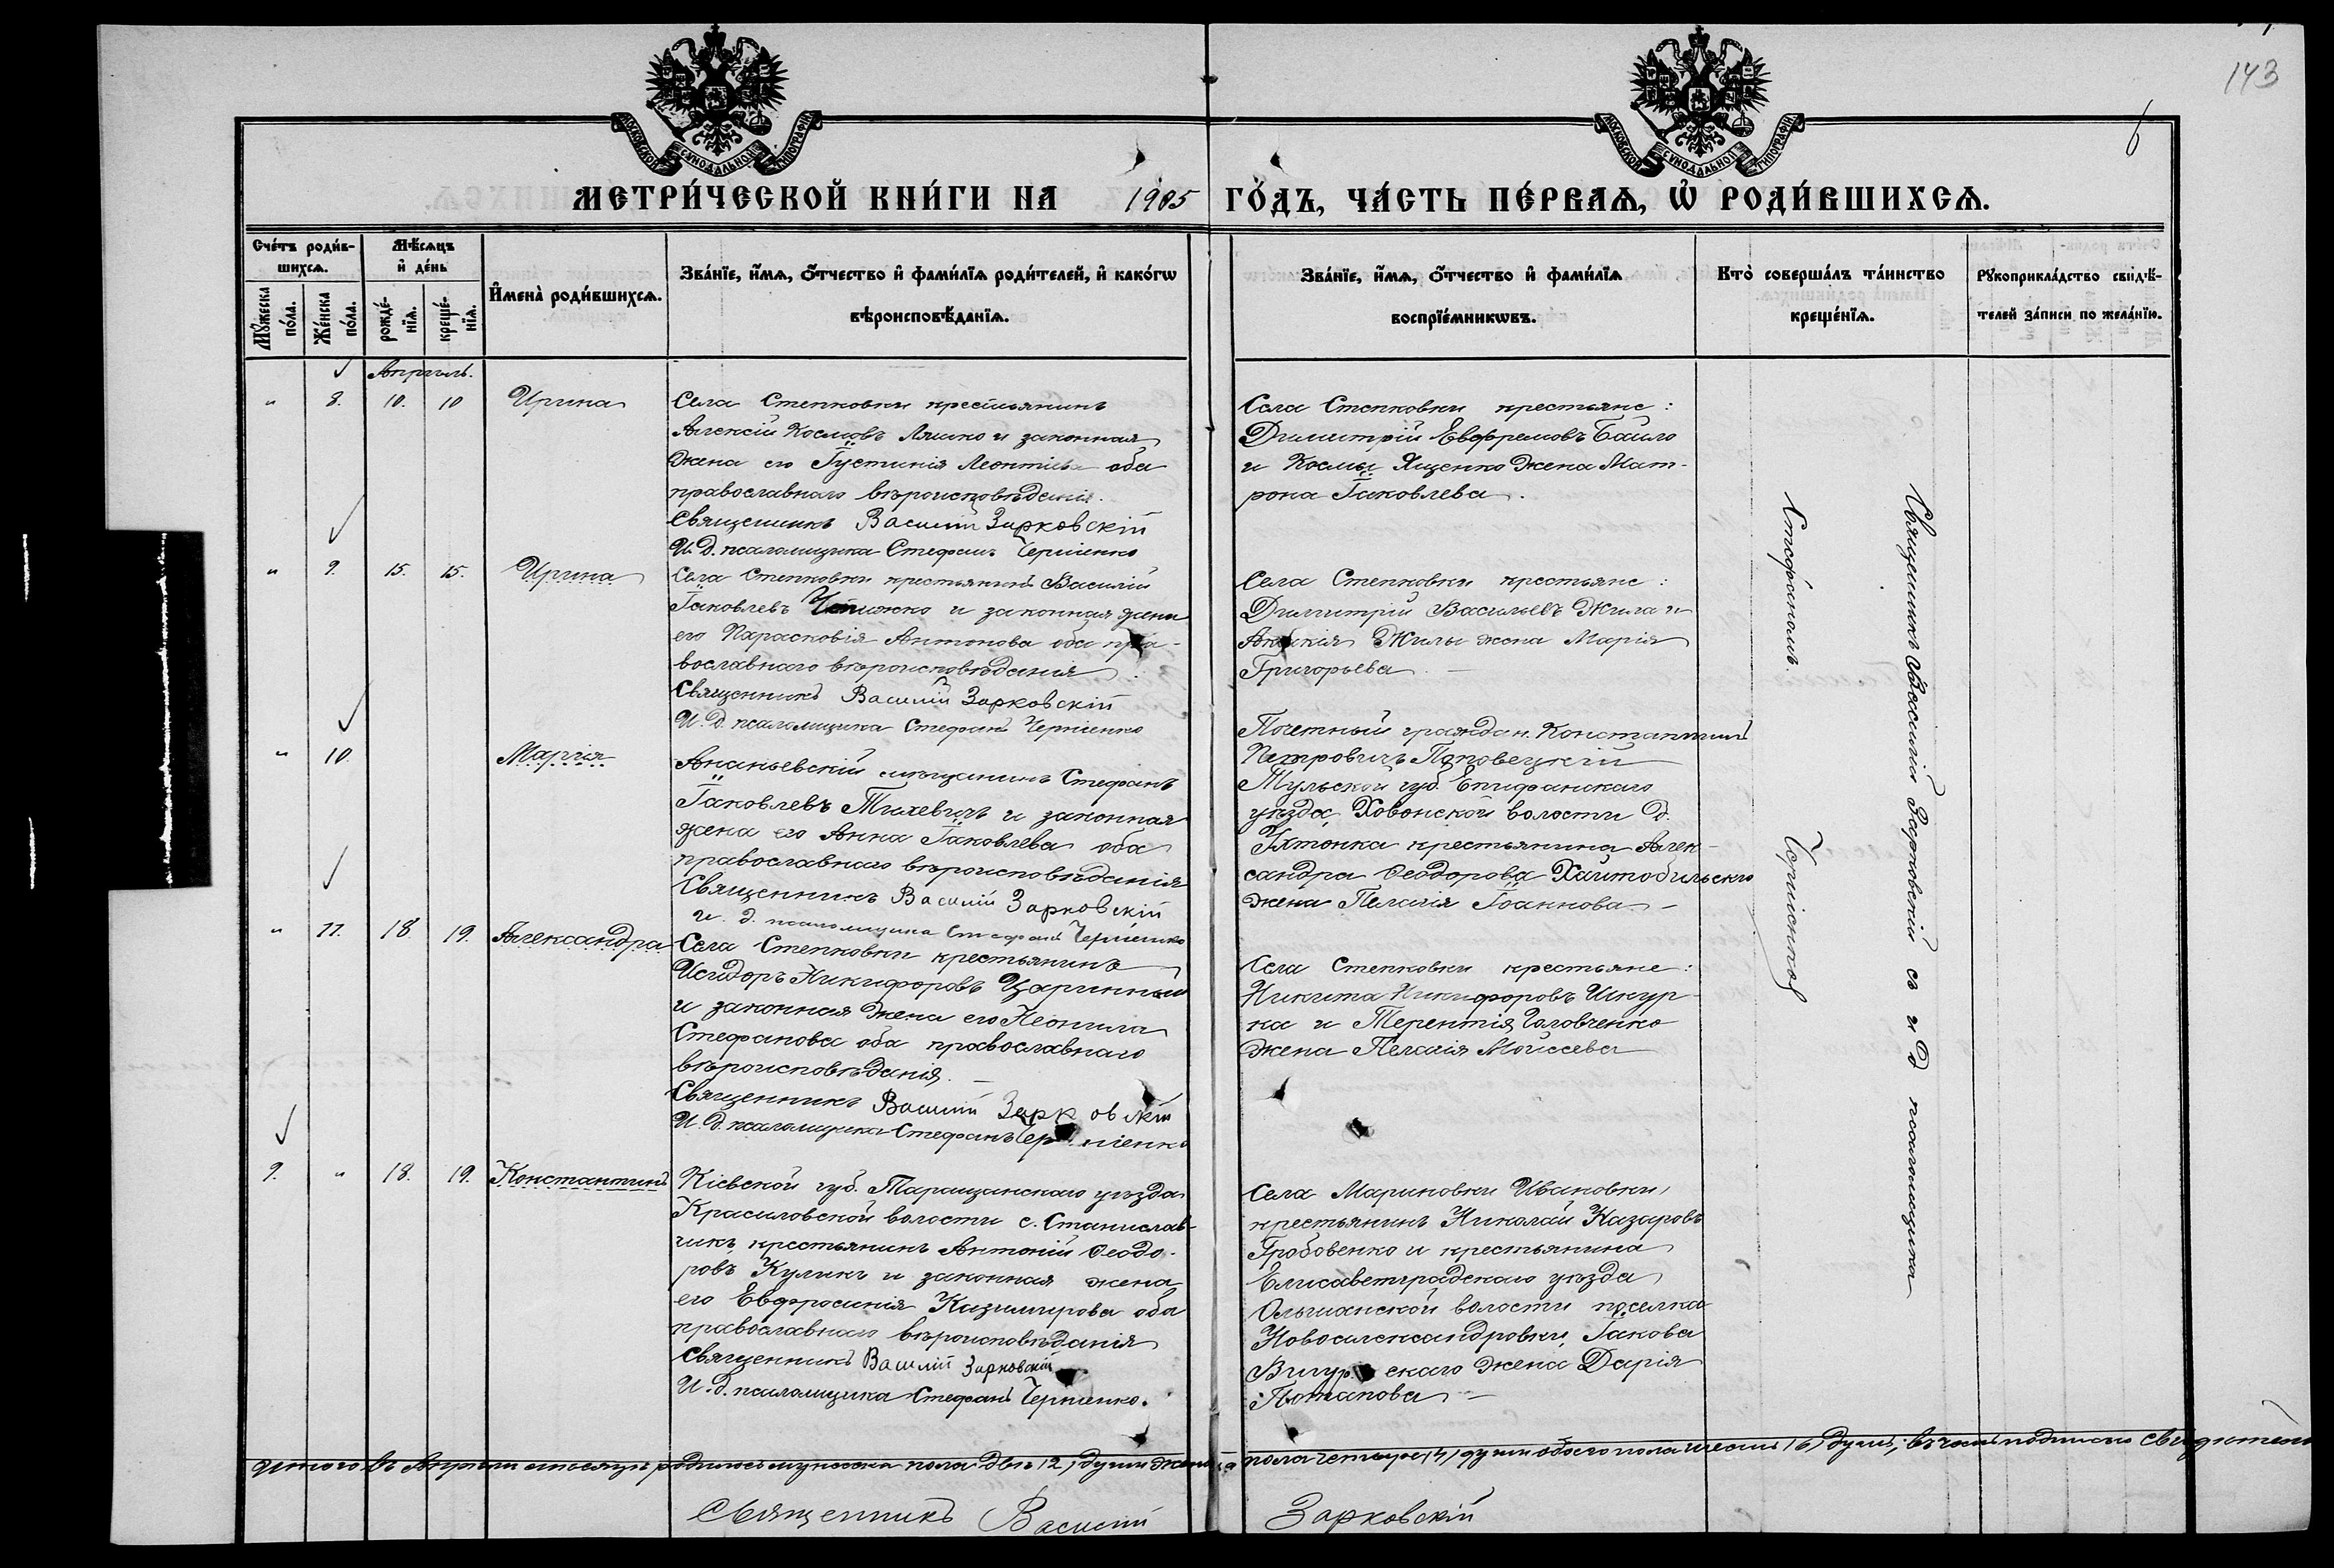 143
6
МОСКОВСКОЙ СѴНОДАЛЬНОЙ ТИПОГРАФІИ
МОСКОВСКОЙ СѴНОДАЛЬНОЙ ТИПОГРАФІИ
МЕТРИ́ЧЕСКОЙ КНИ́ГИ НА 1905 ГО́ДЪ, ЧА́СТЬ ПЕ́РВАѦ, Ѡ҆ РОДИ́ВШИХСѦ.
Сче́тъ роди́в-
шихсѧ.
Мꙋ́жеска
по́ла.
Же́нска
по́ла.
Мѣ́сѧцъ
и҆ де́нь
рожде́-
нїѧ.
креще́-
нїѧ.
И҆мена̀ роди́вшихсѧ.
Зва́нїе, и҆́мѧ, ѻ҆́тчество и҆ фами́лїѧ роди́телей, и҆ како́гѡ
вѣроисповѣ́данїѧ.
Зва́нїе, и҆́мѧ, ѻ҆́тчество и҆ фами́лїѧ
воспрїе́мникѡвъ.
Кто̀ соверша́лъ та́инство
креще́нїѧ.
Рꙋкоприкла́дство свидѣ́-
телей за́писи по жела́нїю.
Апрѣль.
" 8. 10. 10 Ирина
Села Степковки крестьянинъ
Алексій Космовъ Ляшко и законная
жена его Іустинія Леонтіева оба
православнаго вѣроисповѣданія.
Священникъ Василій Зарковскій
И. Д. псаломщика Стефанъ Черніенко
Села Степковки крестьяне:
Димитрій Евфремовъ Байло
и Космы Ященко жена Мат-
рона Іаковлева.
" 9. 15. 15. Ирина
Села Степковки крестьянинъ Василій
Іаковлевъ и законная жена
его Парасковія Антонова оба пра-
вославнаго вѣроисповѣданія.
Священникъ Василій Зарковскій
И. Д. псаломщика Стефанъ Черніенко
Села Степковки крестьяне:
Димитрій Васильевъ Жила и
Жилы жена Марія
Григорьева. —
" 10. Марія
Ананьевскій мѣщанинъ Стефанъ
Іаковлевъ Тихевичъ и законная
жена его Анна Іаковлева оба
православнаго вѣроисповѣданія
Священникъ Василій Зарковскій
и. д. псаломщика Стефанъ Черніенко
Почетный граждан. Константинъ
Петровичъ Поповецкій
Тульской губ. Епифанскаго
уѣзда Ховонской волости д.
крестьянина Алек-
сандра Ѳеодорова
жена Пелагія Іоаннова. —
" 11. 18 19. Александра
Села Степковки крестьянинъ
Исидоръ Никифоровъ Царинный
и законная жена его Неонила
Стефанова оба православнаго
вѣроисповѣданія. —
Священникъ Василій Зарковскій
И. Д. псаломщика Стефанъ Черніенко
Села Степковки крестьяне:
Никита Никифоровъ Шкур-
ка и Терентія Головченко
жена Пелагія Мойсеева
9. " 18. 19. Константинъ
Кіевской губ. Таращанскаго уѣзда
Красиловской волости с. Станислав-
чикъ крестьянинъ Антоній Ѳеодо-
ровъ Куликъ и законная жена
его Евфросинія Казимирова оба
православнаго вѣроисповѣданія
Священникъ Василій Зарковскій
И. Д. псаломщика Стефанъ Черніенко.
Села Мариновки Ивановки,
крестьянинъ Николай Назаровъ
Гробовенко и крестьянина
Елисаветградскаго уѣзда
Ольшанской волости поселка
Новоалександровки, Іакова
жена Дарія
Потапова —
Священникъ Василій Зарковскій съ и Д псаломщика
Стефаномъ Черніенков
Итого въ Апрѣлѣ мѣсяцѣ родилось мужеска пола двѣ (2) души женска пола четыре (4) души обоего пола шесть (6) душъ; въ чемъ подписью свидѣтел
Священникъ Василій Зарковскій